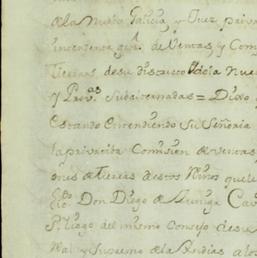 de la Nueba Galicia, y Juez priva
intendente gral de Ventas, y Com
tierras de su distrito de la Nue
y Prov.as Subalternadas = Dixo
Estando Entendiendo Su Señoria
la privatiba Comision de ventas
ones de tierras de estos
Don Diego de Zuñiga
del mismo Consejo de su
y Supremo de las Indias a los